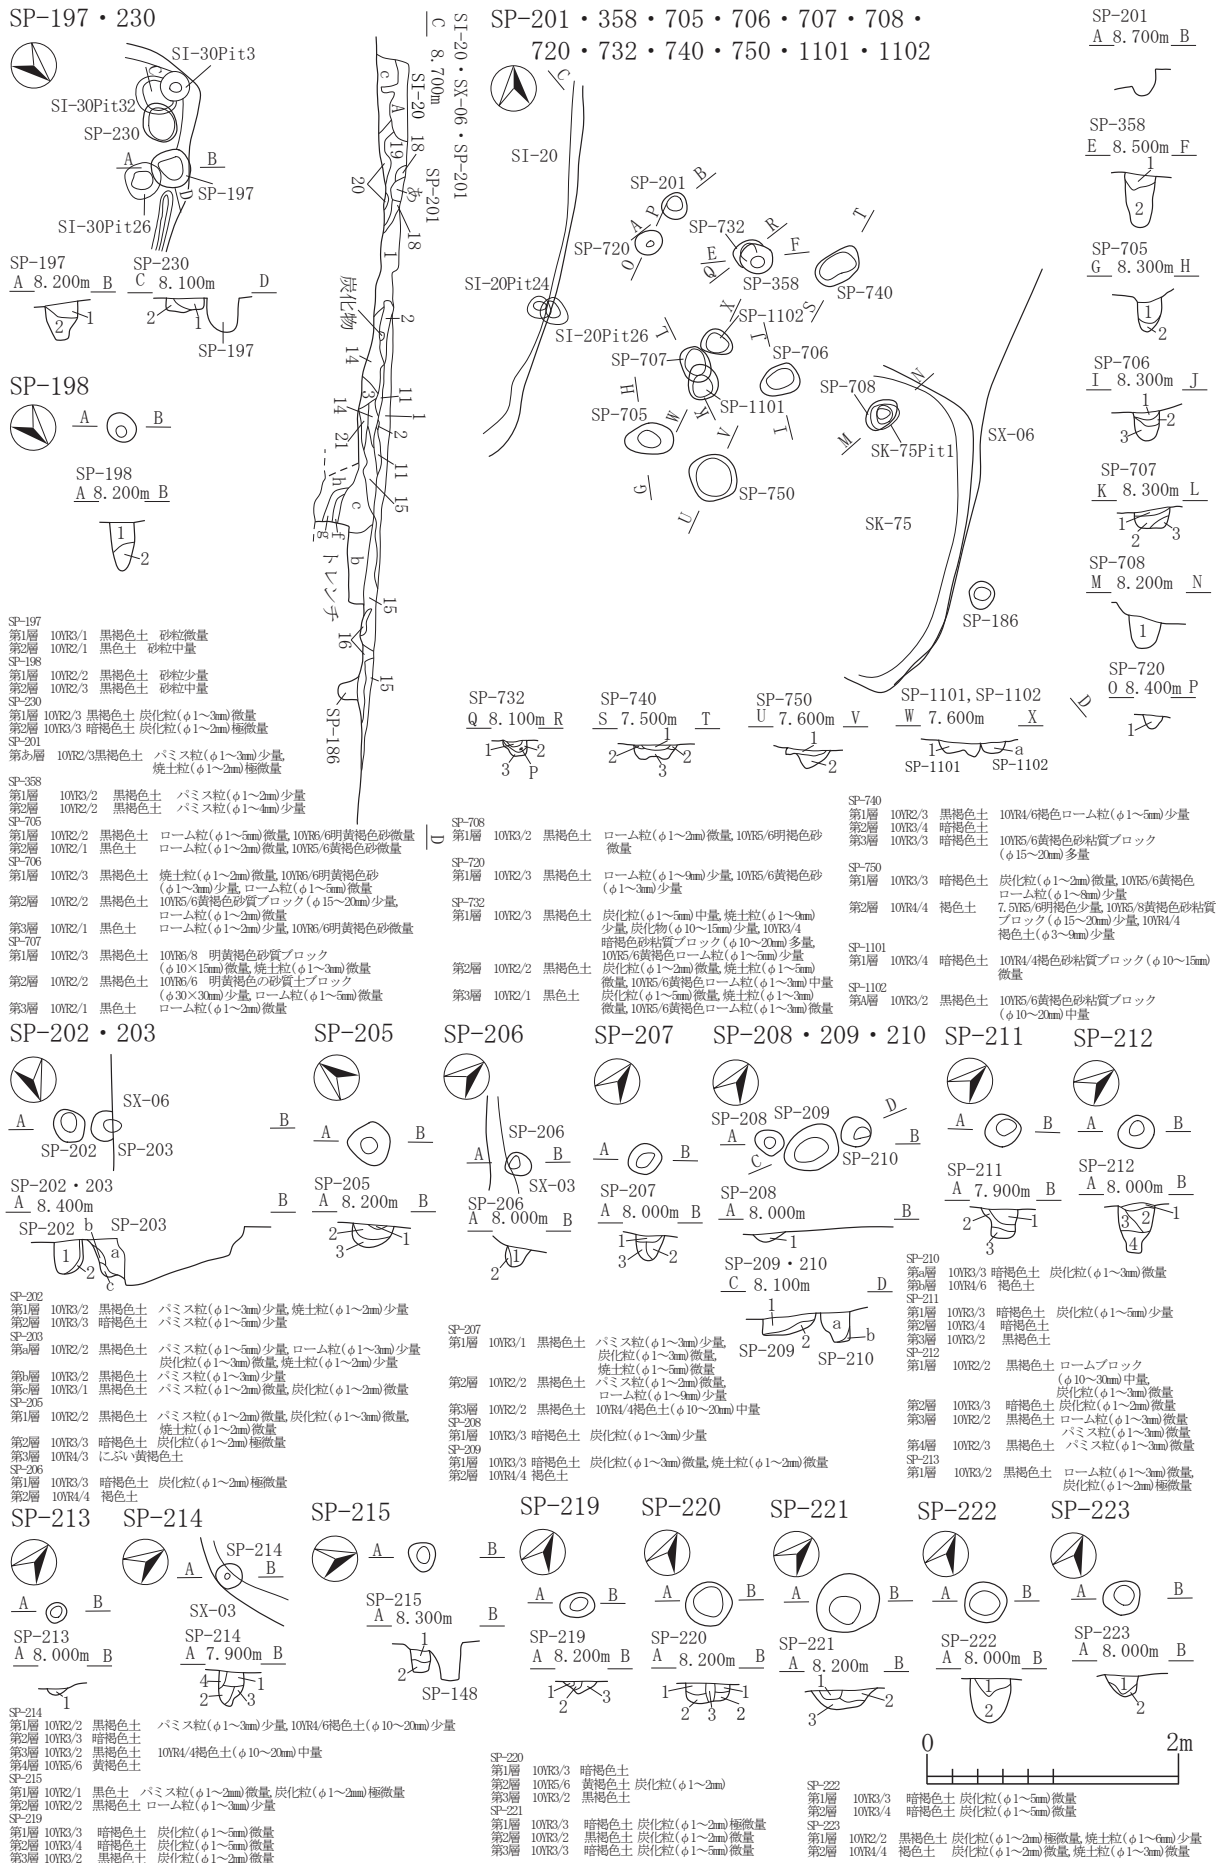 SP-197・230
SI-30Pit3
SI-30Pit32
SP-230
A B
SP-197
SI-30Pit26
C
D
SP-197
A 8.200m B
1
2
SP-230
C 8.100m D
2
1
SP-197
SP-198
A B
SP-198
A 8.200m B
1
2
SI-20・SX-06・SP-201
C 8.700m
SI-20
SP-201
c
A
18
19
20
あ
18
1
炭化物
2
14
3
11
14
1
21
2
11
h
c
15
g
f
b
トレンチ
15
16
15
SP-186
D
SP-201・358・705・706・707・708・
720・732・740・750・1101・1102
C
SI-20
SP-201
B
A
P
SP-720
O
SP-732
R
E
F
Q
SP-358
T
SP-740
S
SI-20Pit24
SI-20Pit26
X
SP-1102
L
J
SP-707
SP-706
H
SP-1101
SP-705
W
K
V
I
G
SP-750
U
SP-708
N
M
SK-75Pit1
SX-06
SK-75
SP-186
D
SP-201
A 8.700m B
SP-358
E 8.500m F
1
2
SP-705
G 8.300m H
1
2
SP-706
I 8.300m J
1
2
3
SP-707
K 8.300m L
1
2
3
SP-708
M 8.200m N
1
SP-720
O 8.400m P
1
SP-732
Q 8.100m R
1
2
3
P
SP-740
S 7.500m T
1
2 2
3
SP-750
U 7.600m V
1
2
SP-1101, SP-1102
W 7.600m X
1 a
SP-1101 SP-1102
SP-197
第1層 10YR3/1 黒褐色土 砂粒微量
第2層 10YR2/1 黒色土 砂粒中量
SP-198
第1層 10YR2/2 黒褐色土 砂粒少量
第2層 10YR2/3 黒褐色土 砂粒中量
SP-230
第1層 10YR2/3 黒褐色土 炭化粒(φ1～3mm)微量
第2層 10YR3/3 暗褐色土 炭化粒(φ1～2mm)極微量
SP-201
第あ層 10YR2/3黒褐色土 パミス粒(φ1～3mm)少量,
焼土粒(φ1～2mm)極微量
SP-358
第1層 10YR3/2 黒褐色土 パミス粒(φ1～2mm)少量
第2層 10YR2/2 黒褐色土 パミス粒(φ1～4mm)少量
SP-705
第1層 10YR2/2 黒褐色土 ローム粒(φ1～5mm)微量, 10YR6/6明黄褐色砂微量
第2層 10YR2/1 黒色土 ローム粒(φ1～2mm)微量, 10YR5/6黄褐色砂微量
SP-706
第1層 10YR2/3 黒褐色土 焼土粒(φ1～2mm)微量, 10YR6/6明黄褐色砂
(φ1～3mm)少量, ローム粒(φ1～5mm)微量
第2層 10YR2/2 黒褐色土 10YR5/6黄褐色砂質ブロック(φ15～20mm)少量,
ローム粒(φ1～2mm)微量
第3層 10YR2/1 黒色土 ローム粒(φ1～2mm)少量, 10YR6/6明黄褐色砂微量
SP-707
第1層 10YR2/3 黒褐色土 10YR6/8 明黄褐色砂質ブロック
(φ10×15mm)微量, 焼土粒(φ1～3mm)微量
第2層 10YR2/2 黒褐色土 10YR6/6 明黄褐色の砂質土ブロック
(φ30×30mm)少量, ローム粒(φ1～5mm)微量
第3層 10YR2/1 黒色土 ローム粒(φ1～2mm)微量
SP-708
第1層 10YR3/2 黒褐色土 ローム粒(φ1～2mm)微量, 10YR5/6明褐色砂
微量
SP-720
第1層 10YR2/3 黒褐色土 ローム粒(φ1～9mm)少量, 10YR5/6黄褐色砂
(φ1～3mm)少量
SP-732
第1層 10YR2/3 黒褐色土 炭化粒(φ1～5mm)中量, 焼土粒(φ1～9mm)
少量, 炭化物(φ10～15mm)少量, 10YR3/4
暗褐色砂粘質ブロック(φ10～20mm)多量,
10YR5/6黄褐色ローム粒(φ1～5mm)少量
第2層 10YR2/2 黒褐色土 炭化粒(φ1～2mm)微量, 焼土粒(φ1～5mm)
微量, 10YR5/6黄褐色ローム粒(φ1～3mm)中量
第3層 10YR2/1 黒色土 炭化粒(φ1～5mm)微量, 焼土粒(φ1～3mm)
微量, 10YR5/6黄褐色ローム粒(φ1～3mm)微量
SP-740
第1層 10YR2/3 黒褐色土 10YR4/6褐色ローム粒(φ1～5mm)少量
第2層 10YR3/4 暗褐色土
第3層 10YR3/3 暗褐色土 10YR5/6黄褐色砂粘質ブロック
(φ15～20mm)多量
SP-750
第1層 10YR3/3 暗褐色土 炭化粒(φ1～2mm)微量, 10YR5/6黄褐色
ローム粒(φ1～8mm)少量
第2層 10YR4/4 褐色土 7.5YR5/6明褐色少量, 10YR5/8黄褐色砂粘質
ブロック(φ15～20mm)少量, 10YR4/4
褐色土(φ3～9mm)少量
SP-1101
第1層 10YR3/4 暗褐色土 10YR4/4褐色砂粘質ブロック(φ10～15mm)
微量
SP-1102
第A層 10YR3/2 黒褐色土 10YR5/6黄褐色砂粘質ブロック
(φ10～20mm)中量
SP-202・203
SX-06
A B
SP-202 SP-203
SP-202・203
A 8.400m B
SP-202 b SP-203
1 a
2
c
SP-205
A B
SP-205
A 8.200m B
2 1
3
SP-206
SP-206
A B
SX-03
SP-206
A 8.000m B
1
2
SP-207
A B
SP-207
A 8.000m B
1
3 2
SP-208・209・210
SP-208 SP-209 D
A B
C SP-210
SP-208
A 8.000m B
1
SP-209・210
C 8.100m D
1
a
2 b
SP-209 SP-210
SP-211
A B
SP-211
A 7.900m B
2 1
3
SP-212
A B
SP-212
A 8.000m B
1
3 2
4
SP-202
第1層 10YR3/2 黒褐色土 パミス粒(φ1～3mm)少量, 焼土粒(φ1～2mm)少量
第2層 10YR3/3 暗褐色土 パミス粒(φ1～5mm)少量
SP-203
第a層 10YR2/2 黒褐色土 パミス粒(φ1～5mm)少量, ローム粒(φ1～3mm)少量
炭化粒(φ1～3mm)微量, 焼土粒(φ1～2mm)少量
第b層 10YR3/2 黒褐色土 パミス粒(φ1～3mm)少量
第c層 10YR3/1 黒褐色土 パミス粒(φ1～2mm)微量, 炭化粒(φ1～2mm)微量
SP-205
第1層 10YR2/2 黒褐色土 パミス粒(φ1～2mm)微量, 炭化粒(φ1～3mm)微量,
焼土粒(φ1～2mm)微量
第2層 10YR3/3 暗褐色土 炭化粒(φ1～2mm)極微量
第3層 10YR4/3 にぶい黄褐色土
SP-206
第1層 10YR3/3 暗褐色土 炭化粒(φ1～2mm)極微量
第2層 10YR4/4 褐色土
SP-207
第1層 10YR3/1 黒褐色土 パミス粒(φ1～3mm)少量,
炭化粒(φ1～3mm)微量,
焼土粒(φ1～5mm)微量
第2層 10YR2/2 黒褐色土 パミス粒(φ1～2mm)微量,
ローム粒(φ1～9mm)少量
第3層 10YR2/2 黒褐色土 10YR4/4褐色土(φ10～20mm)中量
SP-208
第1層 10YR3/3 暗褐色土 炭化粒(φ1～3mm)少量
SP-209
第1層 10YR3/3 暗褐色土 炭化粒(φ1～3mm)微量, 焼土粒(φ1～2mm)微量
第2層 10YR4/4 褐色土
SP-210
第a層 10YR3/3 暗褐色土 炭化粒(φ1～3mm)微量
第b層 10YR4/6 褐色土
SP-211
第1層 10YR3/3 暗褐色土 炭化粒(φ1～5mm)少量
第2層 10YR3/4 暗褐色土
第3層 10YR3/2 黒褐色土
SP-212
第1層 10YR2/2 黒褐色土 ロームブロック
(φ10～30mm)中量,
炭化粒(φ1～3mm)微量
第2層 10YR3/3 暗褐色土 炭化粒(φ1～2mm)微量
第3層 10YR2/2 黒褐色土 ローム粒(φ1～3mm)微量
パミス粒(φ1～3mm)微量
第4層 10YR2/3 黒褐色土 パミス粒(φ1～3mm)微量
SP-213
第1層 10YR3/2 黒褐色土 ローム粒(φ1～3mm)微量,
炭化粒(φ1～2mm)極微量
SP-213
A B
SP-213
A 8.000m B
1
SP-214
SP-214
A B
SX-03
SP-214
A 7.900m B
4 1
2 3
SP-215
A B
SP-215
A 8.300m B
1
2
SP-148
SP-219
A B
SP-219
A 8.200m B
1
2 3
SP-220
A B
SP-220
A 8.200m B
1 1
2 3 2
SP-221
A B
SP-221
A 8.200m B
1
2
3
SP-222
A B
SP-222
A 8.000m B
1
2
SP-223
A B
SP-223
A 8.000m B
1
2
0 2m
SP-214
第1層 10YR2/2 黒褐色土 パミス粒(φ1～3mm)少量, 10YR4/6褐色土(φ10～20mm)少量
第2層 10YR3/3 暗褐色土
第3層 10YR3/2 黒褐色土 10YR4/4褐色土(φ10～20mm)中量
第4層 10YR5/6 黄褐色土
SP-215
第1層 10YR2/1 黒色土 パミス粒(φ1～2mm)微量, 炭化粒(φ1～2mm)極微量
第2層 10YR2/2 黒褐色土 ローム粒(φ1～3mm)少量
SP-219
第1層 10YR3/3 暗褐色土 炭化粒(φ1～5mm)微量
第2層 10YR3/4 暗褐色土 炭化粒(φ1～5mm)微量
第3層 10YR3/2 黒褐色土 炭化粒(φ1～2mm)微量
SP-220
第1層 10YR3/3 暗褐色土
第2層 10YR5/6 黄褐色土 炭化粒(φ1～2mm)
第3層 10YR3/2 黒褐色土
SP-221
第1層 10YR3/3 暗褐色土 炭化粒(φ1～2mm)極微量
第2層 10YR3/2 黒褐色土 炭化粒(φ1～2mm)微量
第3層 10YR3/3 暗褐色土 炭化粒(φ1～5mm)微量
SP-222
第1層 10YR3/3 暗褐色土 炭化粒(φ1～5mm)微量
第2層 10YR3/4 暗褐色土 炭化粒(φ1～5mm)微量
SP-223
第1層 10YR2/2 黒褐色土 炭化粒(φ1～2mm)極微量, 焼土粒(φ1～6mm)少量
第2層 10YR4/4 褐色土 炭化粒(φ1～2mm)微量, 焼土粒(φ1～3mm)微量